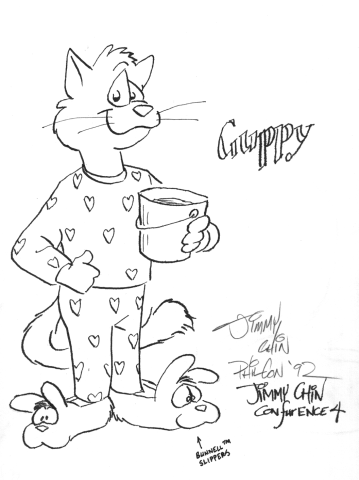 Guppy
Jimmy
Chin
Philcon '92
Jimmy Chin
Confurence 4
Bunnell™
Slippers